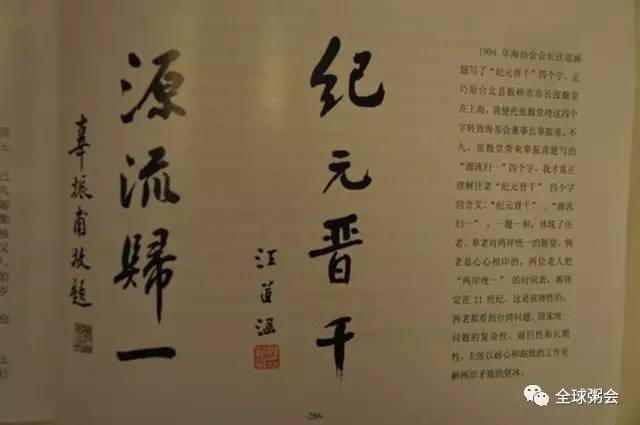 纪元晋千
汪道涵
源流歸一
辜振甫敬題
1994 年海协会会长汪道涵
题写了“纪元晋千”四个字，正
巧原台北县板桥市市长张馥堂
在上海，我便托张馥堂将这四个
字转致海基会董事长辜振甫。不
久，张馥堂带来辜振甫题写的
“源流归一”四个字，我才真正
理解汪老“纪元晋千”四个字
的含义。“纪元晋千”，“源流
归一”，一题一和，体现了汪
老、辜老对两岸统一的展望，俩
老是心心相印的。两位老人把
“两岸统一”的时间表，都锁
定在 21 世纪，这是很理性的。
两老都看到台湾问题、国家统一
问题的复杂性、艰巨性和长期
性，主张以耐心和细致的工作化
解两岸矛盾的坚冰。
-286-
全球粥会